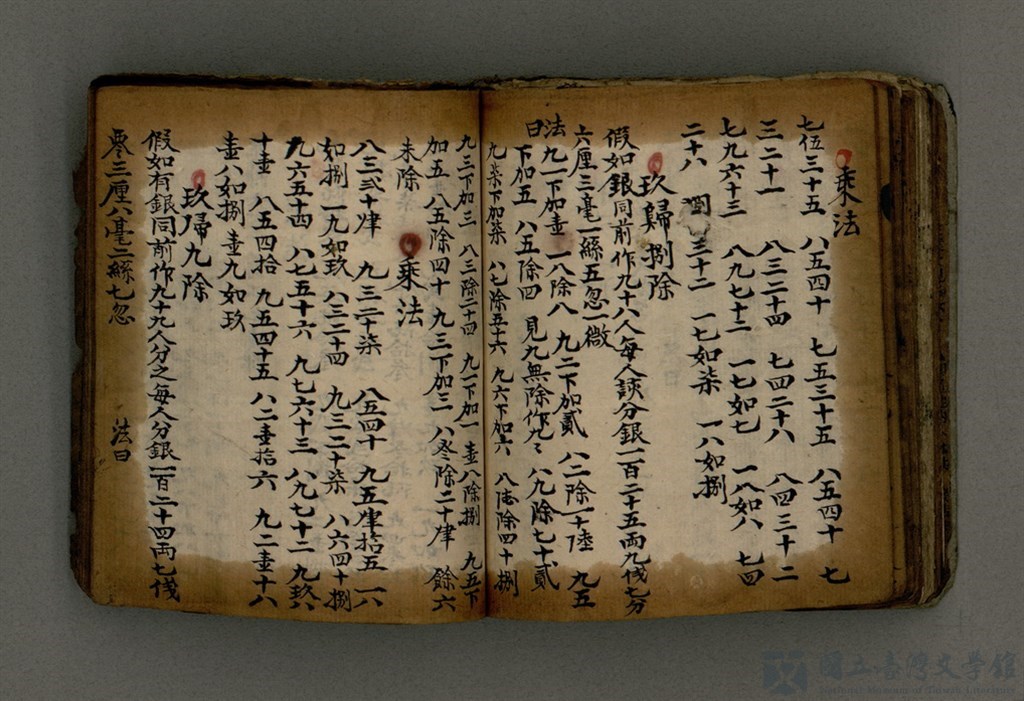 乘法
七伍三十五 八五四十 七五三十五 八五四十 七
三二十一 八三二十四 七四二十八 八四三十二
七九六十三 八九七十二 一七如七 一八如八 七四
二十八 四三十二 一七如柒 一八如捌
玖歸捌除
假如銀同前作九十八人每人該分銀一百二十五両九伐七分
六厘三毫一絲五忽一微
法曰 九一下加壹 一八除八 九二下加貳 八二除一十陸 九五
下加五 八五除四 見九無除作九〻 八九除七十貳
九柒下加柒 八七除五十六 九六下加六 八陸除四十捌
九三下加三 八三除二十四 九一下加一 壹八除捌 九五下
加五 八五除四十 九三下加三 八叁除二十肆 餘六
未除
乘法
八三弍十肆 九三二十柒 八五四十 九五肆拾五 一八
如捌 一九如玖 八三二十四 九三二十柒 八六四十捌
九六五十四 八七五十六 九七六十三 八九七十二 九玖八
十壹 八五四拾 九五四十五 八二壹拾六 九二壹十八
壹八如捌 壹九如玖
玖歸九除
假如有銀同前作九十九人分之每人分銀一百二十四両七伐
零三厘八毫二絲七忽 法曰
國立臺灣文學館
National Museum of Taiwan Literature